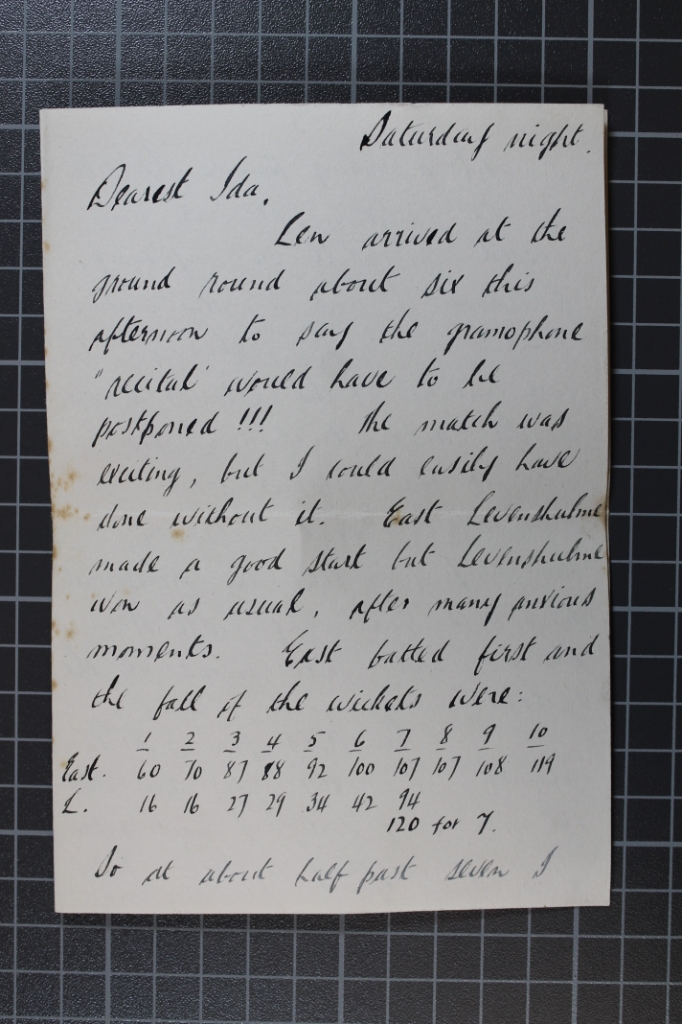 Saturday night.
Dearest Ida,
Len arrived at the
ground round about six this
afternoon to say the gramophone
"recital" would have to be
postponed !!! The match was
exciting, but I could easily have
done without it. East Levenshulme
made a good start but Levenshulme
won as usual, after many anxious
moments. East batted first and
the fall of the wickets were:
1 2 3 4 5 6 7 8 9 10
East. 60 70 87 88 92 100 107 107 108 119
L. 16 16 27 29 34 42 94
120 for 7.
So at about half past seven I